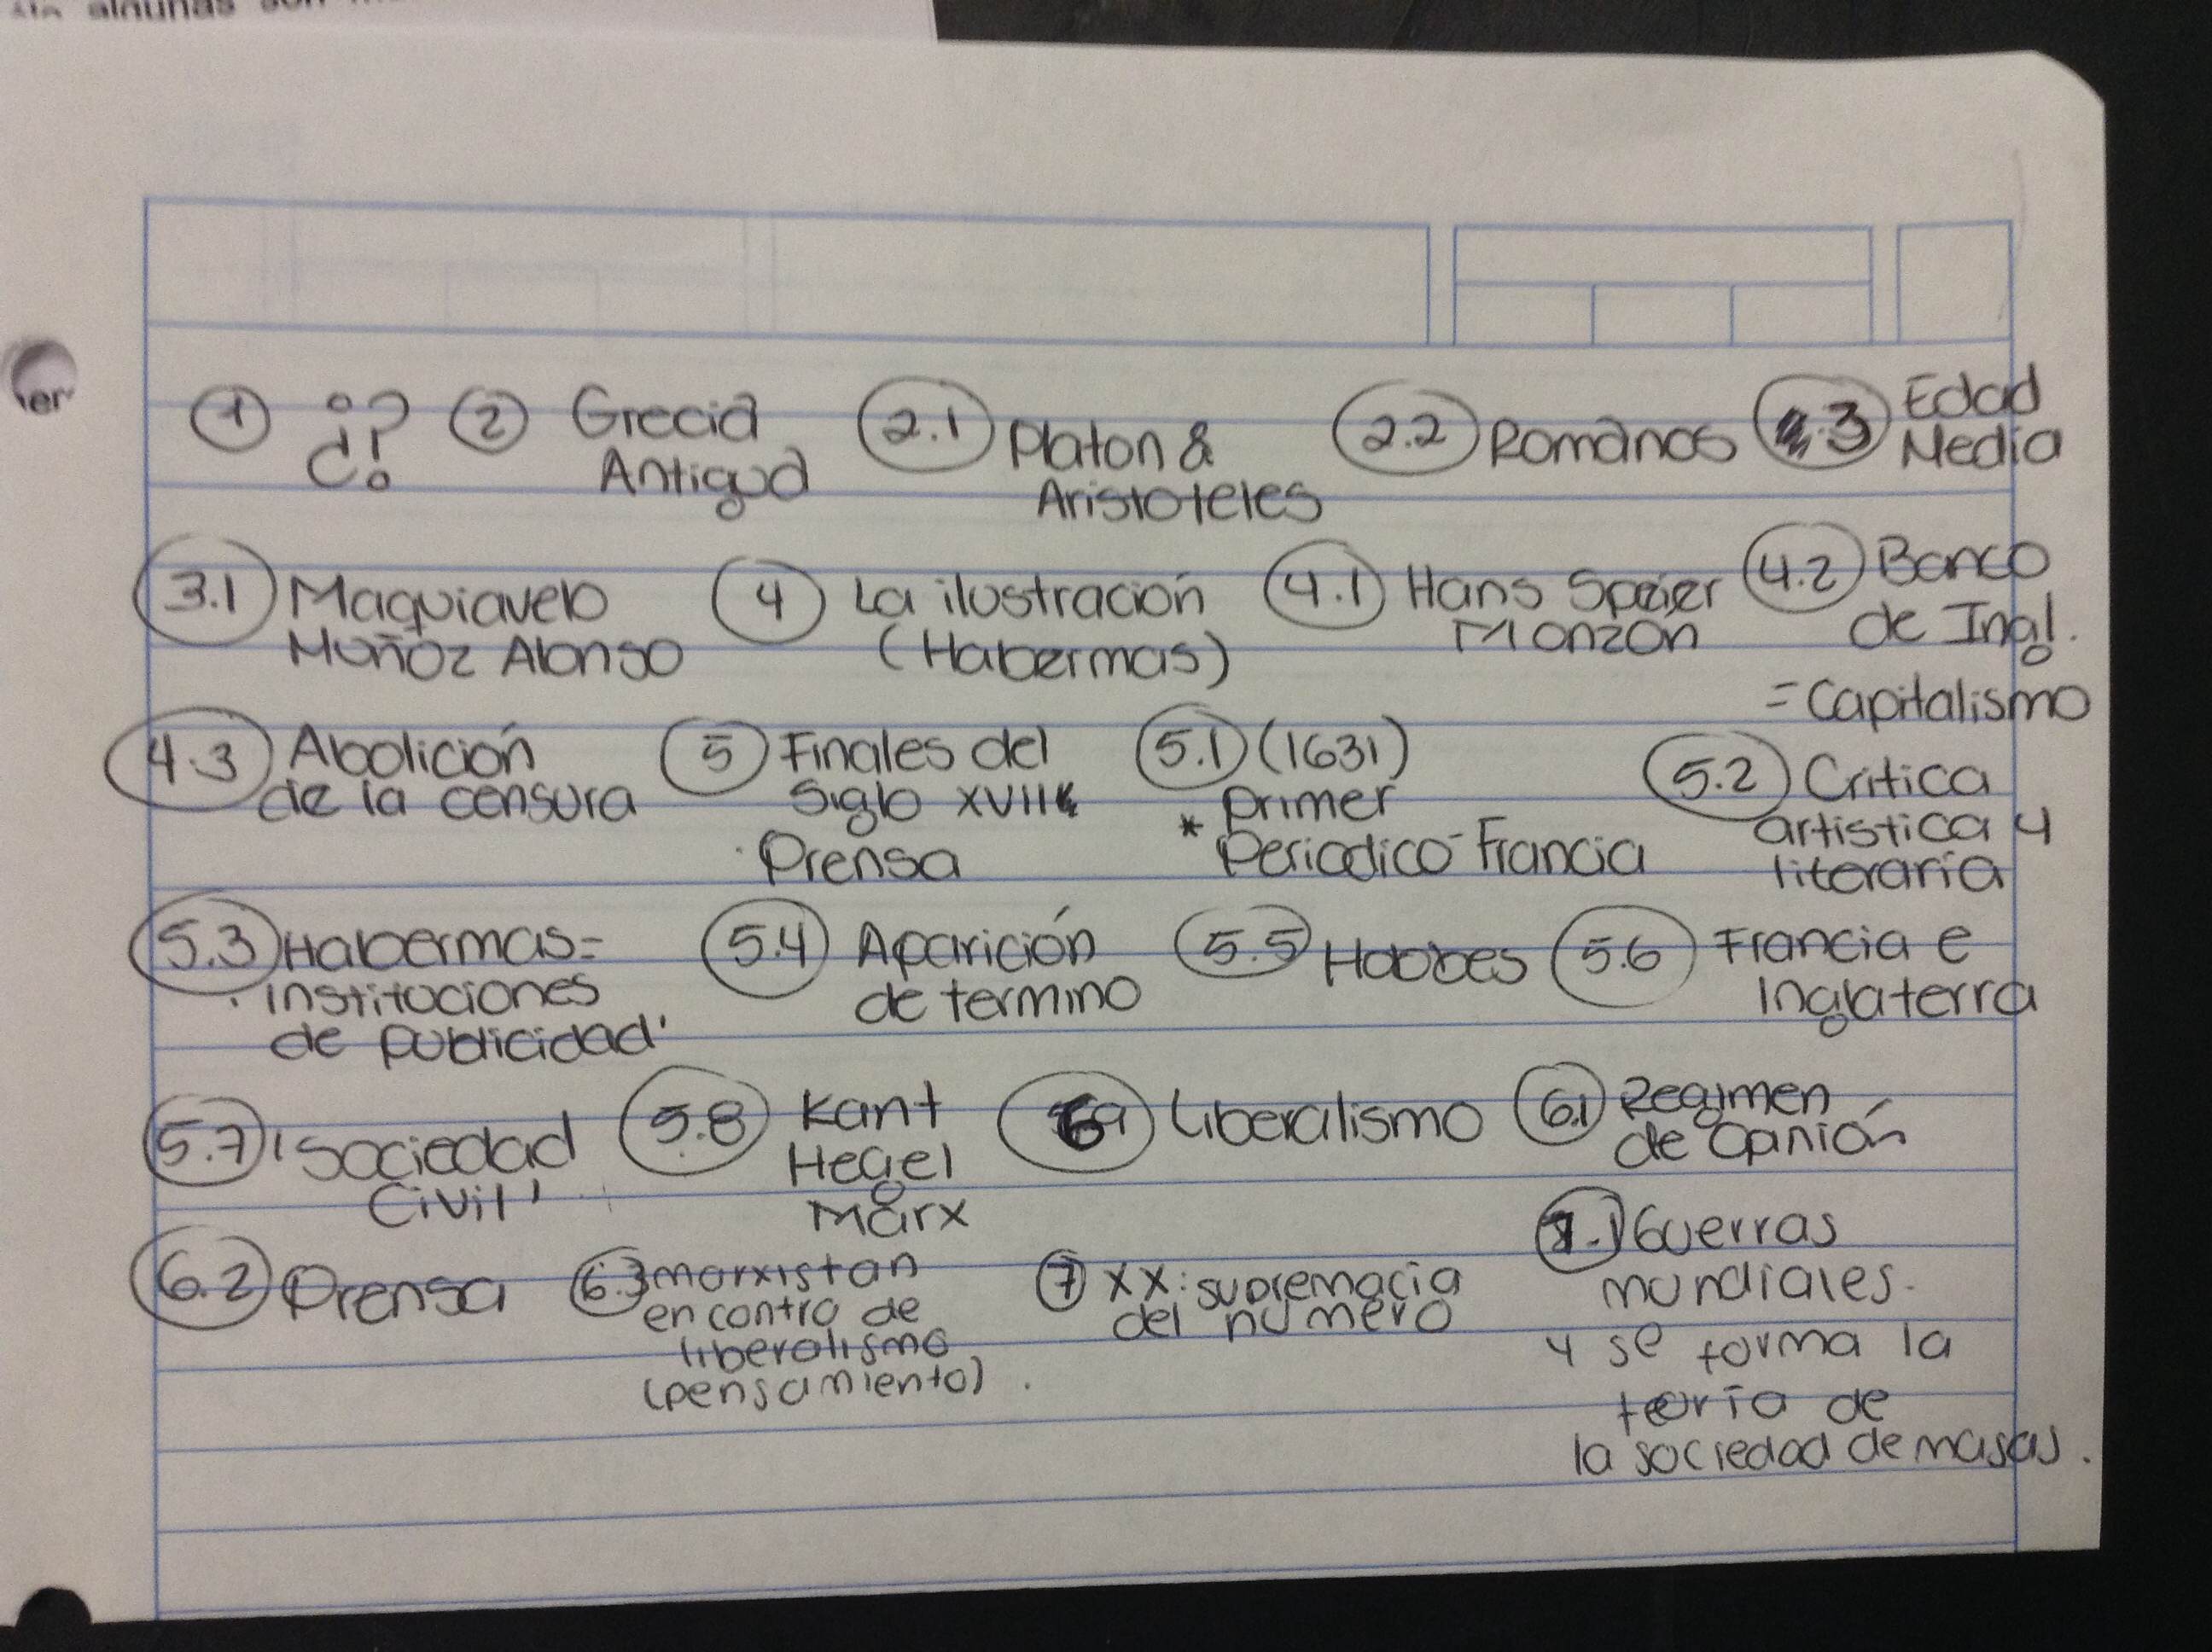 algunas son
er
1 ¿? 2 Grecia Antigua 2.1 Platon & Aristoteles 2.2 Romanos 3 Edad Media
3.1 Maquiavelo Muñoz Alonso 4 La ilustración (Habermas) 4.1 Hans Speier Monzón 4.2 Banco de Ingl. = Capitalismo
4.3 Abolición de la censura 5 Finales del Siglo XVII Prensa 5.1 (1631) * primer Periodico - Francia 5.2 Critica artistica y literaria
5.3 Habermas = 'instituciones de publicidad' 5.4 Aparición de termino 5.5 Hobbes 5.6 Francia e Inglaterra
5.7 'Sociedad Civil' 5.8 Kant Hegel Marx 6 Liberalismo 6.1 Regimen de Opinión
6.2 Prensa 6.3 marxistan en contra de liberalismo (pensamiento). 7 XX: supremacia del numero 7.1 Guerras mundiales. y se forma la teoría de la sociedad de masas.